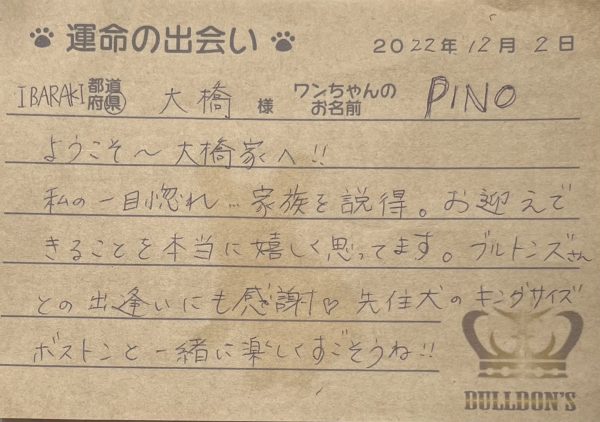 運命の出会い 2022年12月2日
IBARAKI 都道府県 大橋 様 ワンちゃんのお名前 PINO
ようこそ〜大橋家へ!!
私の一目惚れ…家族を説得。お迎えで
きることを本当に嬉しく思ってます。ブルトンズさん
との出逢いにも感謝♡先住犬のキングサイズ
ボストンと一緒に楽しくすごそうね!!
BULLDON'S